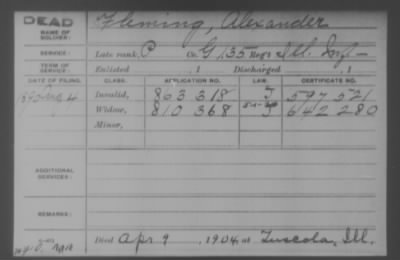 DEAD
NAME OF SOLDIER:
Fleming, Alexander
SERVICE:
Late rank, P Co. G, 135 Reg't Ill. Inf.
TERM OF SERVICE:
Enlisted , 1 Discharged , 1
DATE OF FILING.
CLASS.
APPLICATION NO.
LAW.
CERTIFICATE NO.
1890 Aug 4
Invalid,
863 318
J
597 521
Widow,
810 368
642 280
Minor,
ADDITIONAL SERVICES:
REMARKS:
Died Apr 9 , 1904, at Tuscola, Ill.